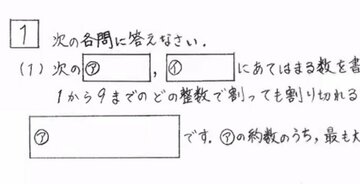 1 次の各問に答えなさい.
(1) 次の ㋐ , ㋑ にあてはまる数を書
1から9までのどの整数で割っても割り切れる
㋐ です. ㋐の約数のうち, 最も大